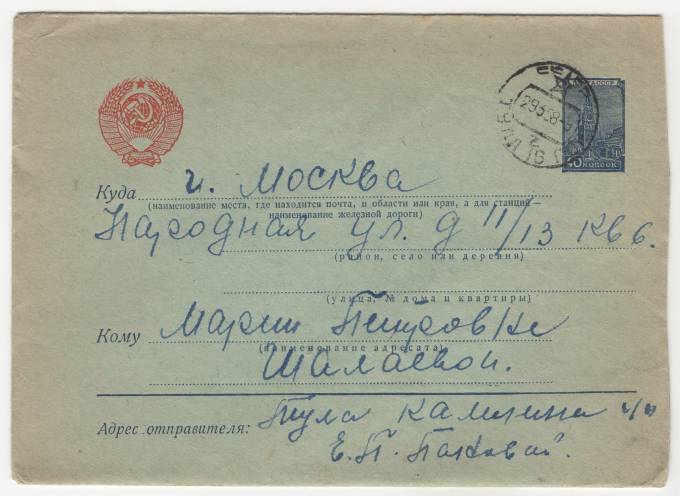 ПОЧТА СССР
40 КОПЕЕК
Куда г. Москва
(наименование места, где находится почта, и области или края, а для станций—
наименование железной дороги)
Народная ул. д 11/13 кв 6.
(район, село или деревня)
(улица, № дома и квартиры)
Кому Марии Петровне
(наименование адресата)
Шалаевой.
Адрес отправителя: Тула Калинина
Е. П.